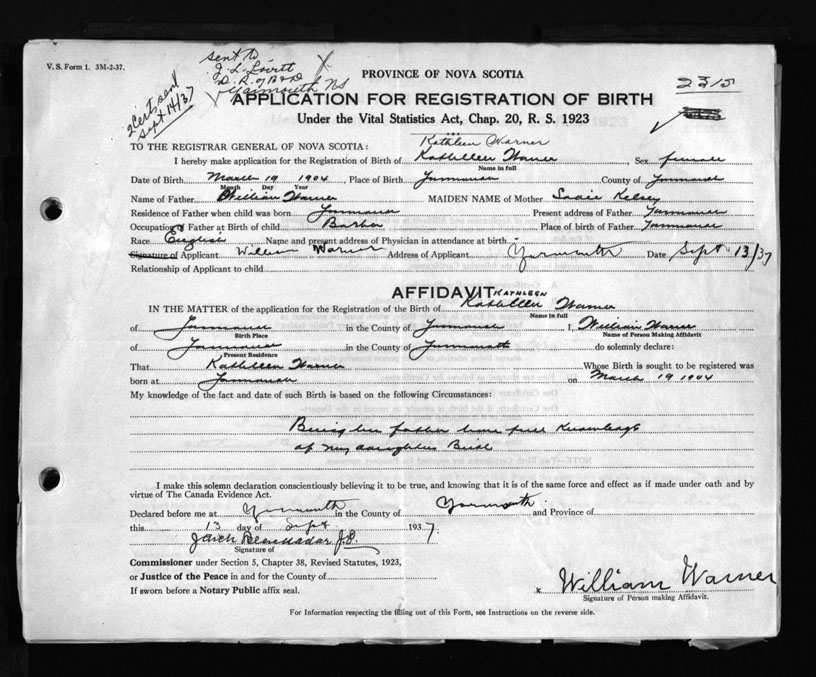 V. S. Form 1. 3M-2-37.
Sent to
J. L. Lovitt
D. R. of B & D
Yarmouth NS
2 Certs sent
Sept 14/37
2315
PROVINCE OF NOVA SCOTIA
APPLICATION FOR REGISTRATION OF BIRTH
Under the Vital Statistics Act, Chap. 20, R. S. 1923
Kathleen Warner
TO THE REGISTRAR GENERAL OF NOVA SCOTIA:
I hereby make application for the Registration of Birth of Kathleen Warner, Sex female
Name in full
Date of Birth March 19 1904, Place of Birth Yarmouth County of Yarmouth
Month Day Year
Name of Father William Warner MAIDEN NAME of Mother Sadie Kelsey
Residence of Father when child was born Yarmouth Present address of Father Yarmouth
Occupation of Father at Birth of child Barber Place of birth of Father Yarmouth
Race English Name and present address of Physician in attendance at birth
Signature of Applicant William Warner Address of Applicant Yarmouth Date Sept 13/37
Relationship of Applicant to child
AFFIDAVIT
KATHLEEN
IN THE MATTER of the application for the Registration of the Birth of Kathleen Warner
Name in full
of Yarmouth in the County of Yarmouth I, William Warner
Birth Place Name of Person Making Affidavit
of Yarmouth in the County of Yarmouth do solemnly declare:
Present Residence
That Kathleen Warner Whose Birth is sought to be registered was
born at Yarmouth on March 19 1904
My knowledge of the fact and date of such Birth is based on the following Circumstances:
Being her father have full Knowledge
of my daughters Birth
I make this solemn declaration conscientiously believing it to be true, and knowing that it is of the same force and effect as if made under oath and by
virtue of The Canada Evidence Act.
Declared before me at Yarmouth in the County of Yarmouth and Province of
this 13 day of Sept 1937.
J.P.
Signature of
Commissioner under Section 5, Chapter 38, Revised Statutes, 1923,
or Justice of the Peace in and for the County of
If sworn before a Notary Public affix seal.
x William Warner
Signature of Person making Affidavit.
For Information respecting the filling out of this Form, see Instructions on the reverse side.